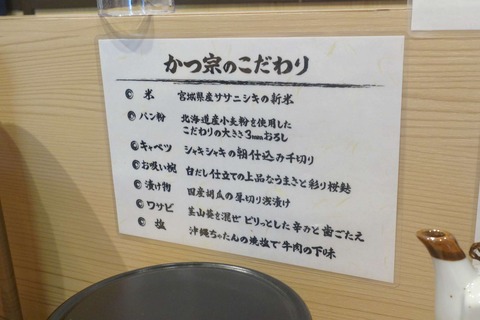 かつ宗のこだわり
米 宮城県産ササニシキの新米
パン粉 北海道産小麦粉を使用した
こだわりの大きさ3mmおろし
キャベツ シャキシャキの朝仕込み千切り
お吸い椀 白だし仕立ての上品なうまきと彩り桜麩
漬け物 国産胡瓜の厚切り浅漬け
ワサビ 茎山葵を混ぜピリっとした辛みと歯ごたえ
塩 沖縄ちゃたんの焼塩で牛肉の下味